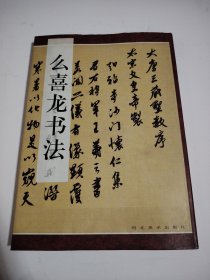 么喜龙书法
大唐三藏圣教序
太宗文皇帝製
弘福寺沙门怀仁集
晋右将军王羲之书
盖闻二仪有像顯覆
寒暑以化物是以窥天
河北美术出版社